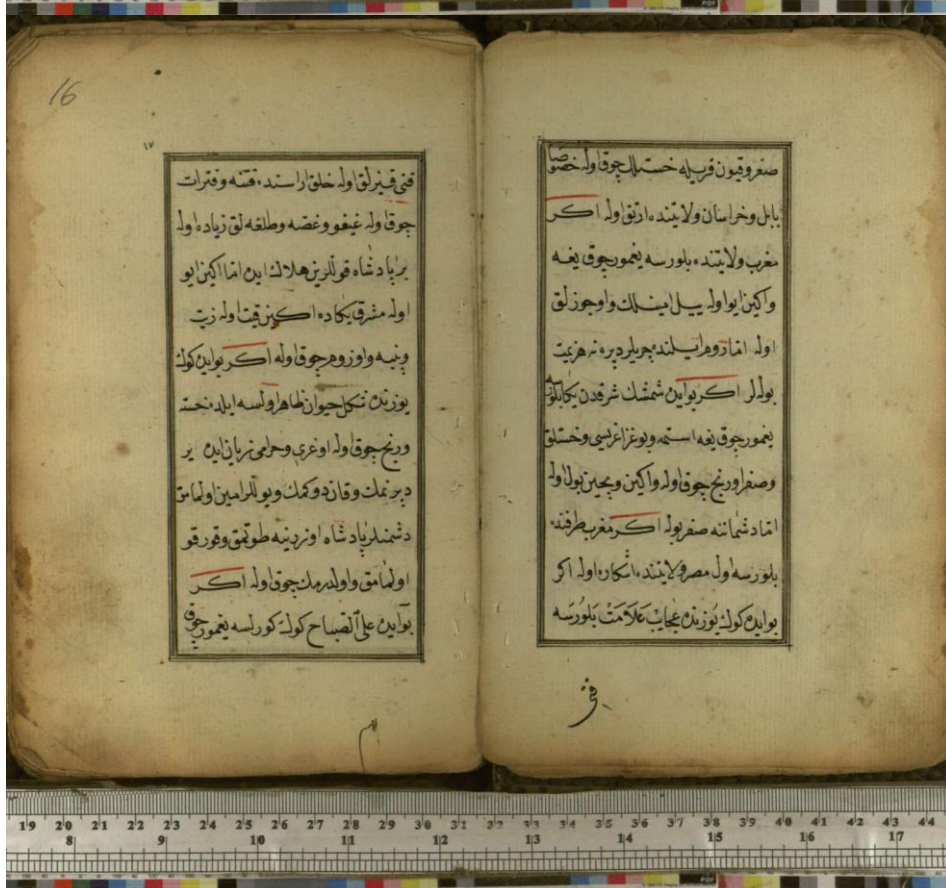 صغر و قیون قریله خستلك چوق اوله خصوصا
بابل وخراسان ولایتنده ارتق اوله اكر
مغرب ولایتنده بلورسه یغمور چوق یغه
واكین ایو اوله ییل امینلك واوجوزلق
اوله اما روم ایلنده چریلر دیره نه هزیمت
بوله لر اكر بو ایده شمشك شرقدن یكا بلورسه
یغمور چوق یغه استمه وبوغز اغریسی وخستلق
وصفرا ورنج چوق اوله واكین ویچین بول اوله
اما دشمانه ظفر بوله اكر مغرب طرفنده
بلورسه اول مصر ولایتنده اشكاره اوله اكر
بو ایده كوك یوزنده عجایب علامت بلورسه
قتی
16
١٧
قتی قیزلق اوله خلق اراسنده فتنه وفترات
چوق اوله غیغو وغصه وطلغه لق زیاده اوله
بر پادشاه قوللرین هلاك ایده اما اكین ایو
اوله مشرق یكاده اكین قیت اوله زیت
وپنبه واوزوم چوق اوله اكر بو ایده كوك
یوزنده شكل حیوان ظاهر اولسه ایلده خسته
ورنج چوق اوله اوغری وحرامی زیان ایده یر
دپرنمك وقان دوكمك ویوللر امین اولمامق
دشمنلر پادشاه اوزرینه طوتمق وقورقو
اولمامق واولدرمك چوق اوله اكر
بو ایده علی الصباح كوك كورلسه یغمور چوق